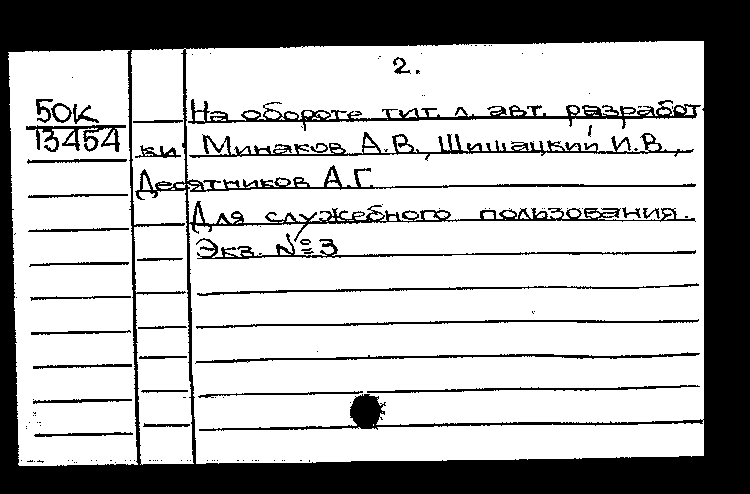 2.
50К
13454
На обороте тит. л. авт. разработ-
ки Минаков А.В., Шишацкий И.В.,
Десятников А.Г.
Для служебного пользования.
Экз. №3